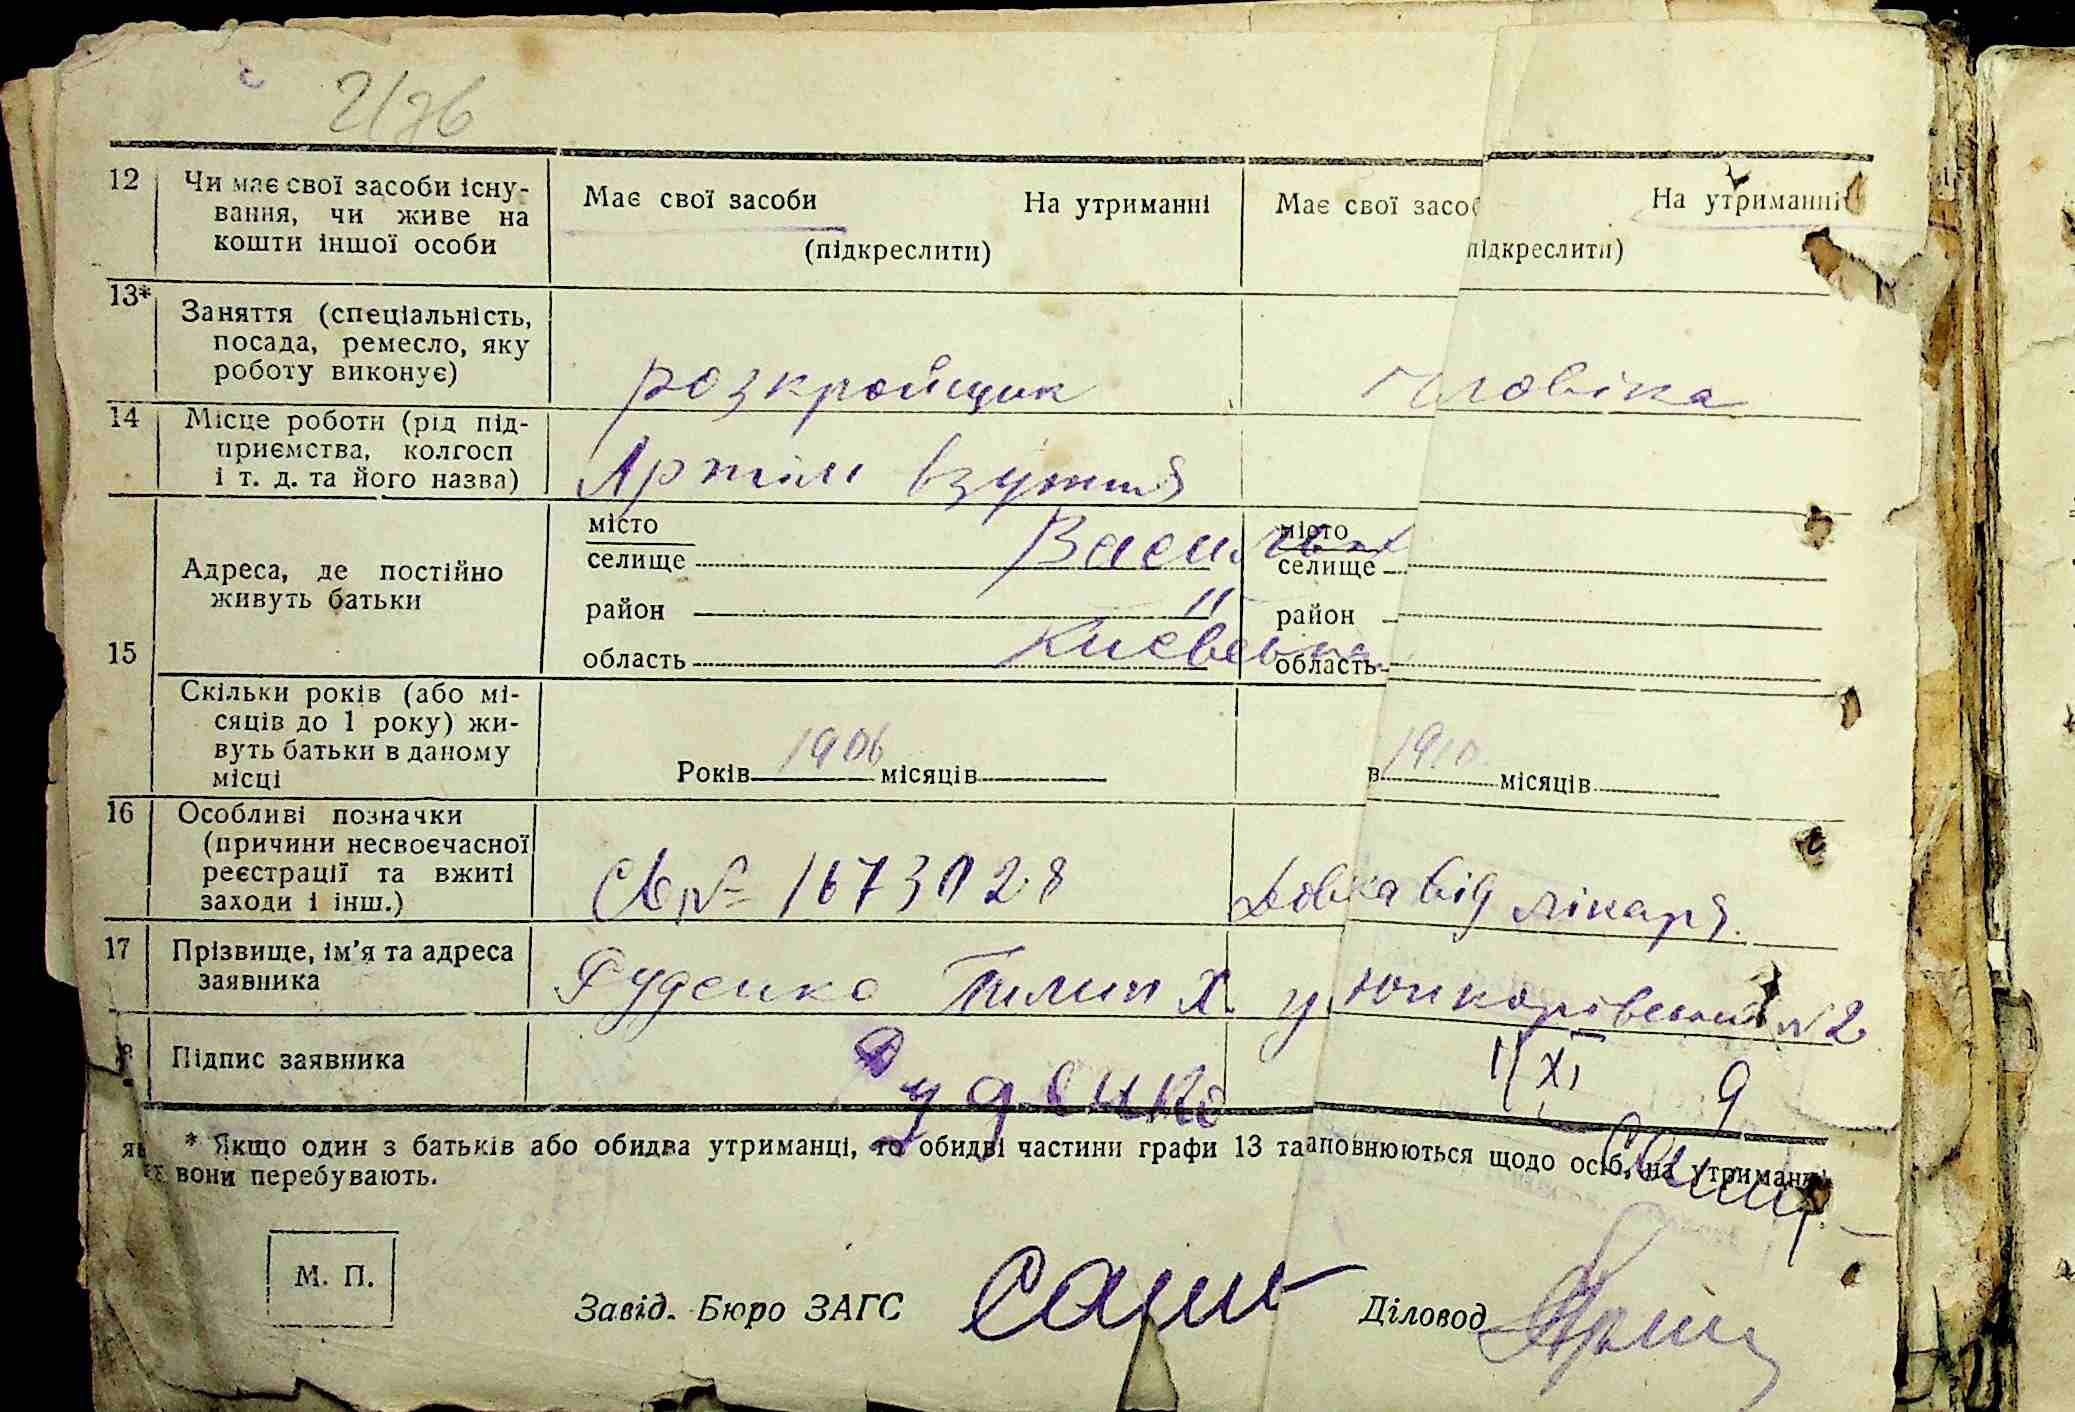 12 Чи має свої засоби існу-
вання, чи живе на
кошти іншої особи
Має свої засоби На утриманні
(підкреслити)
Має свої засоб На утриманні
підкреслити)
13* Заняття (спеціальність,
посада, ремесло, яку
роботу виконує)
розкройщик
чоловіка
14 Місце роботи (рід під-
приємства, колгосп
і т. д. та його назва)
Артіль взуття
15 Адреса, де постійно
живуть батьки
місто
селище
Васильк
район "
область Київськ
місто
селище
район
область
Скільки років (або мі-
сяців до 1 року) жи-
вуть батьки в даному
місці
Років 1906 місяців
в 1910 місяців
16 Особливі позначки
(причини несвоєчасної
реєстрації та вжиті
заходи і інш.)
Св № 1673028
Довка від лікаря.
17 Прізвище, ім'я та адреса
заявника
Руденко Пилип Х.
№2
Підпис заявника
Руденко
11/XI 9
* Якщо один з батьків або обидва утриманці, то обидві частини графи 13 та аповнюються щодо осіб, на утриманні
вони перебувають.
М. П.
Завід. Бюро ЗАГС
Діловод